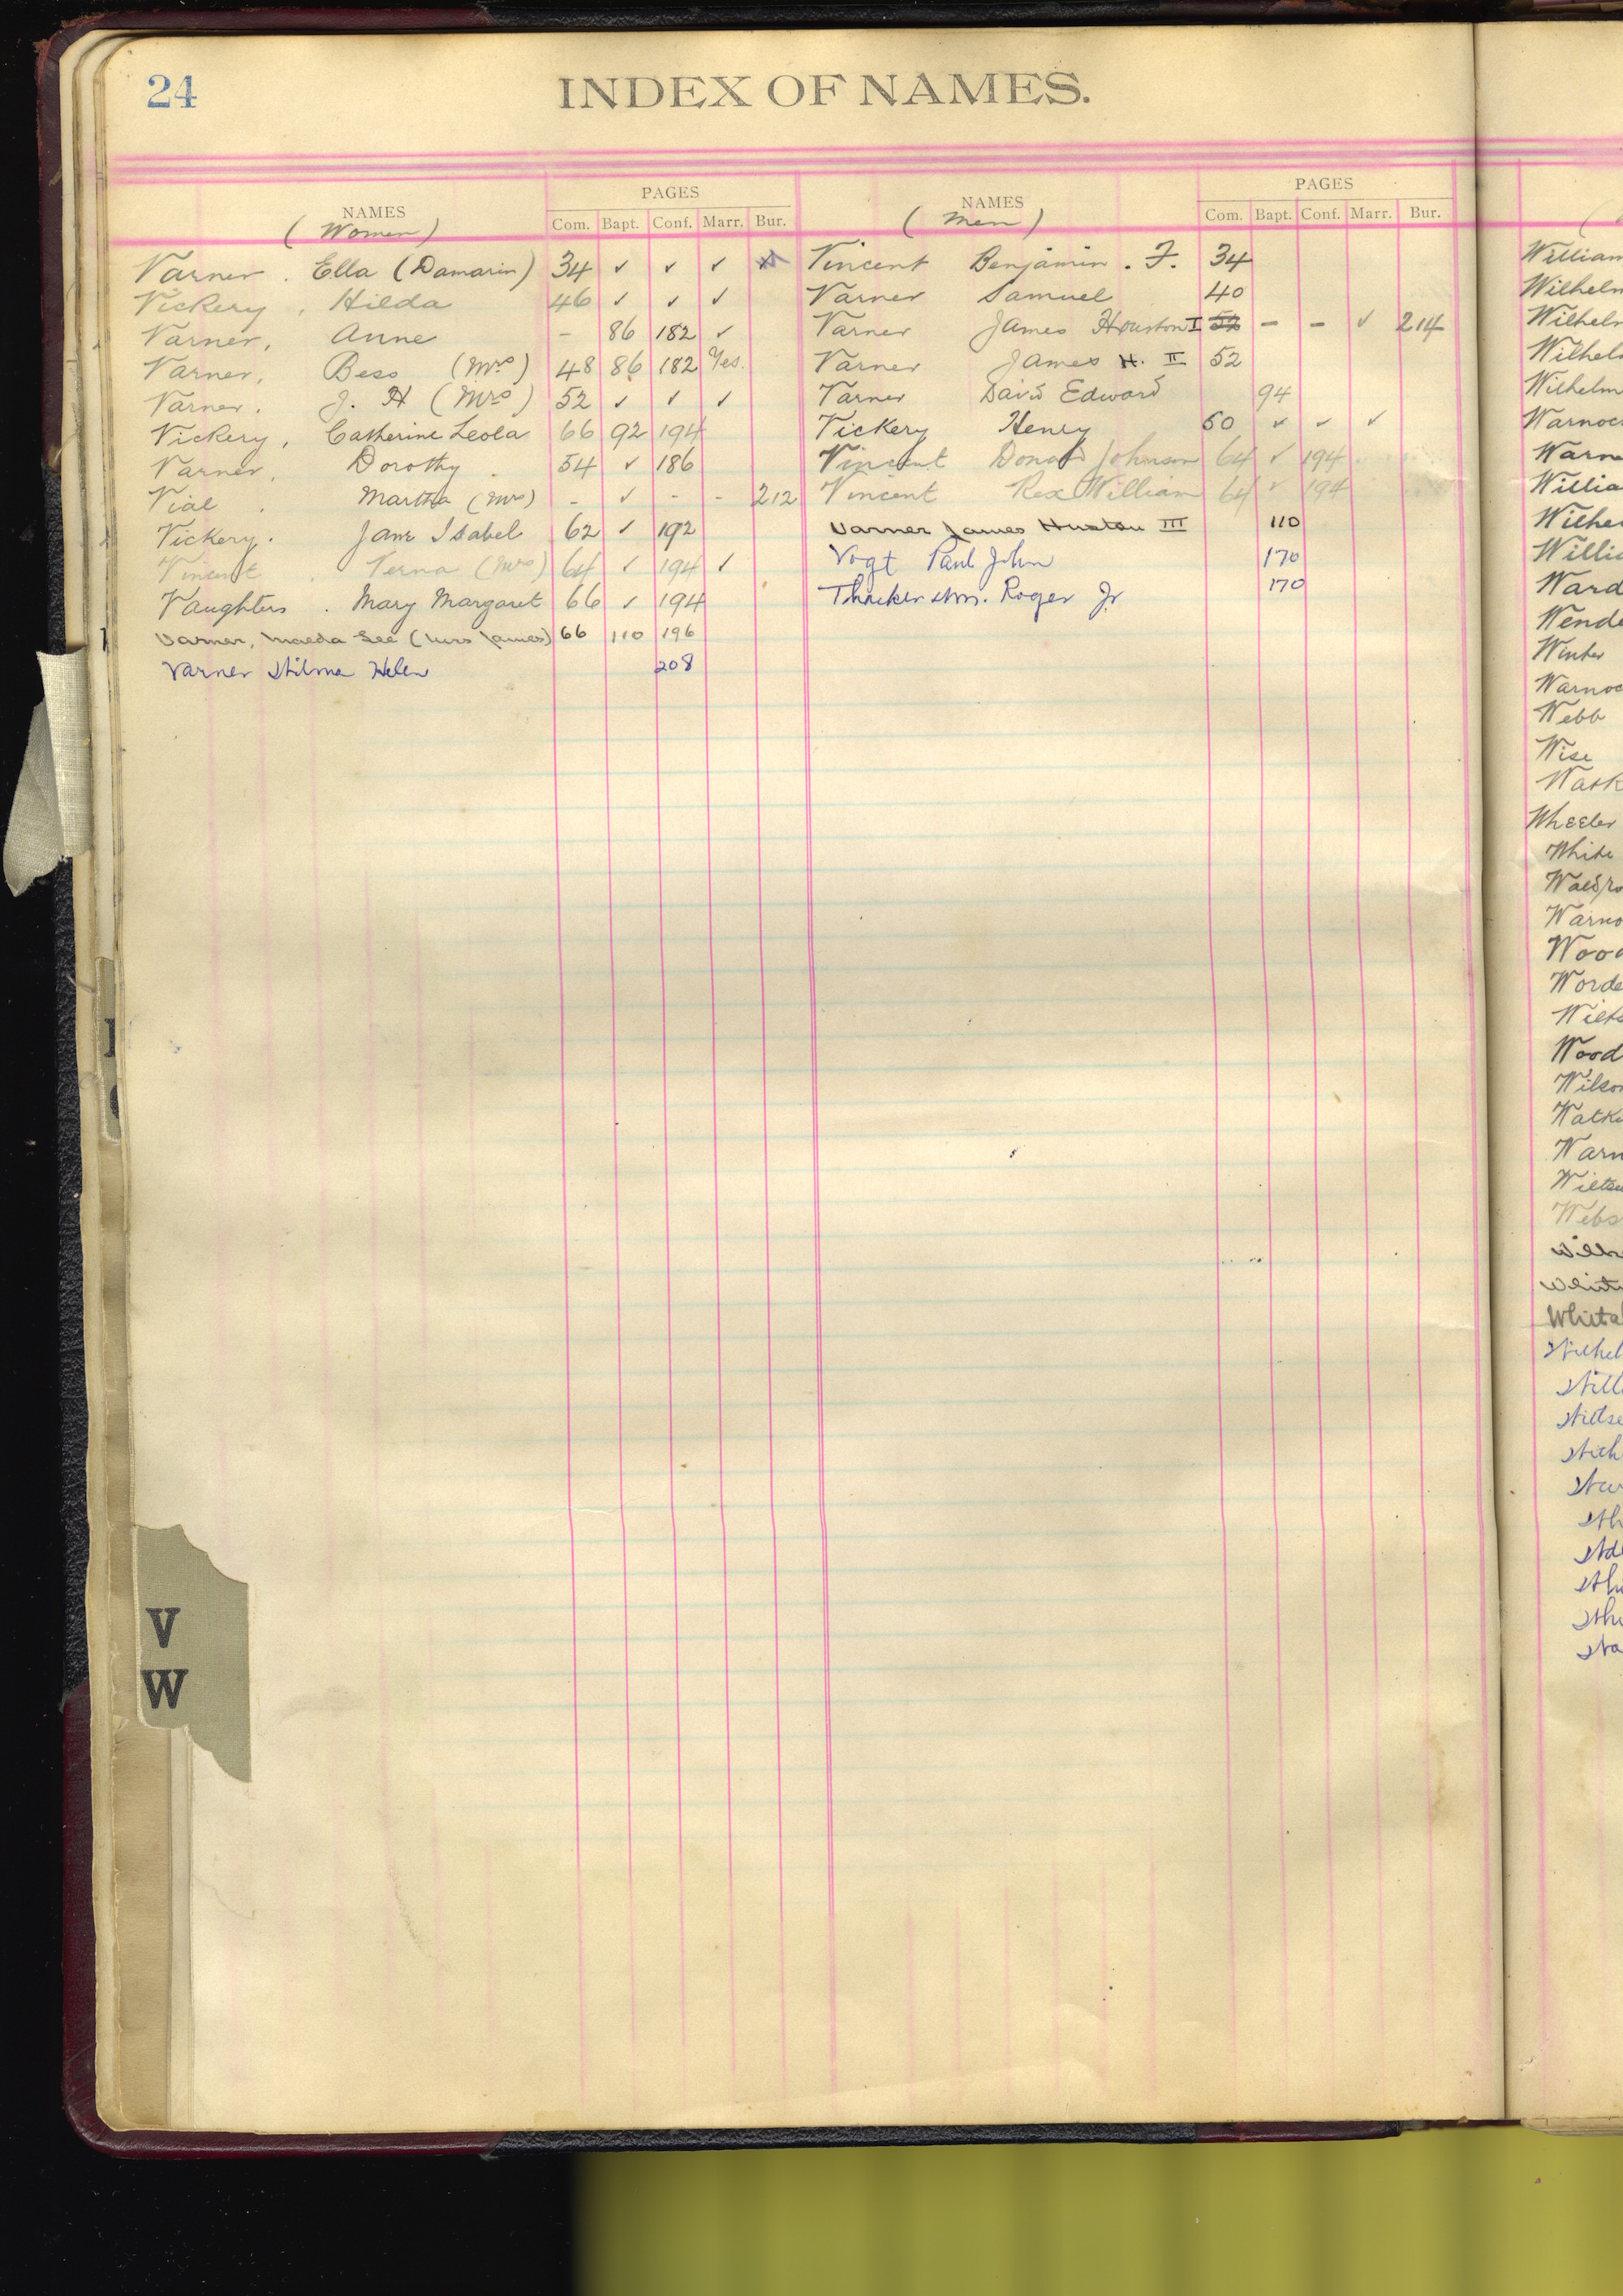 24
INDEX OF NAMES.
NAMES
(Women)
PAGES
Com. Bapt. Conf. Marr. Bur.
Varner . Ella (Damarin) 34 ✓ ✓ ✓
Vickery , Hilda 46 ✓ ✓ ✓
Varner, Anne – 86 182 ✓
Varner, Bess (Mrs) 48 86 182 Yes.
Varner, J. H (Mrs) 52 ✓ ✓ ✓
Vickery, Catherine Leola 66 92 194
Varner, Dorothy . 54 ✓ 186
Vial . Martha (Mrs) - ✓ - - 212
Vickery. Jane Isabel 62 ✓ 192
Vincent . Verna (Mrs) 64 ✓ 194 ✓
Vaughters . Mary Margaret 66 ✓ 194
Varner, See (Mrs James) 66 110 196
Varner Wilma Helen 208
NAMES
(Men)
PAGES
Com. Bapt. Conf. Marr. Bur.
Vincent Benjamin . F. 34
Varner Samuel 40
Varner James Houston I 52 – – ✓ 214
Varner James H. II 52
Varner David Edward 94
Vickery Henry 50 ✓ – ✓
Vincent Donald Johnson 64 ✓ 194
Vincent Rex William 64 ✓ 194
Varner James Huston III 110
Vogt Paul John 170
Thacker Wm. Roger Jr 170
V
W
William
Wilhelm
Wilhelm
Wilhelm
Wilhelm
Warnoc
Warne
Willia
Wilhe
Willia
Ward
Wende
Winter
Warnoc
Webb
Wise
Wheeler
White
Warno
Wood
Worde
Wood
Wilson
Watki
Warn
Webs